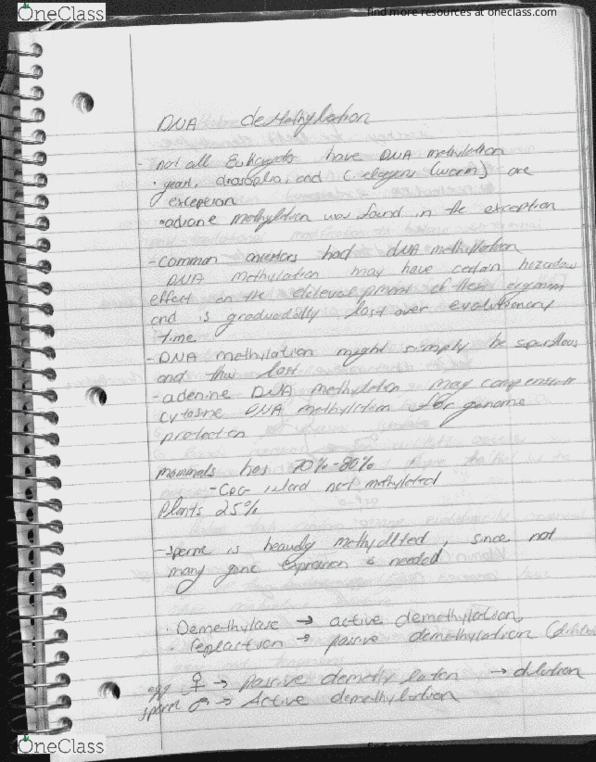 OneClass
find more resources at oneclass.com
DNA demethylation
- Not all Eukaryots have DNA methylation
• yeast, drosophila, and C. elegans (worm) are
exception
• adenine methylation was found in the exception
- Common ancestors had DNA methylation
DNA methylation may have certain hazardous
effect on the development of their organism
and is gradually lost over evolutionary
time.
- DNA methylation might simply be superfluous
and thus lost
- adenine DNA methylation may compensate
cytosine DNA methylation for genome
protection
mammals has 70%-80%
- CpG island not methylated
Plants 25%
- sperm is heavily methylated, since not
many gene expression is needed
• Demethylase → active demethylation
• replication → passive demethylation
egg ♀ → Passive demethylation → dilution
sperm ♂ → Active demethylation
OneClass